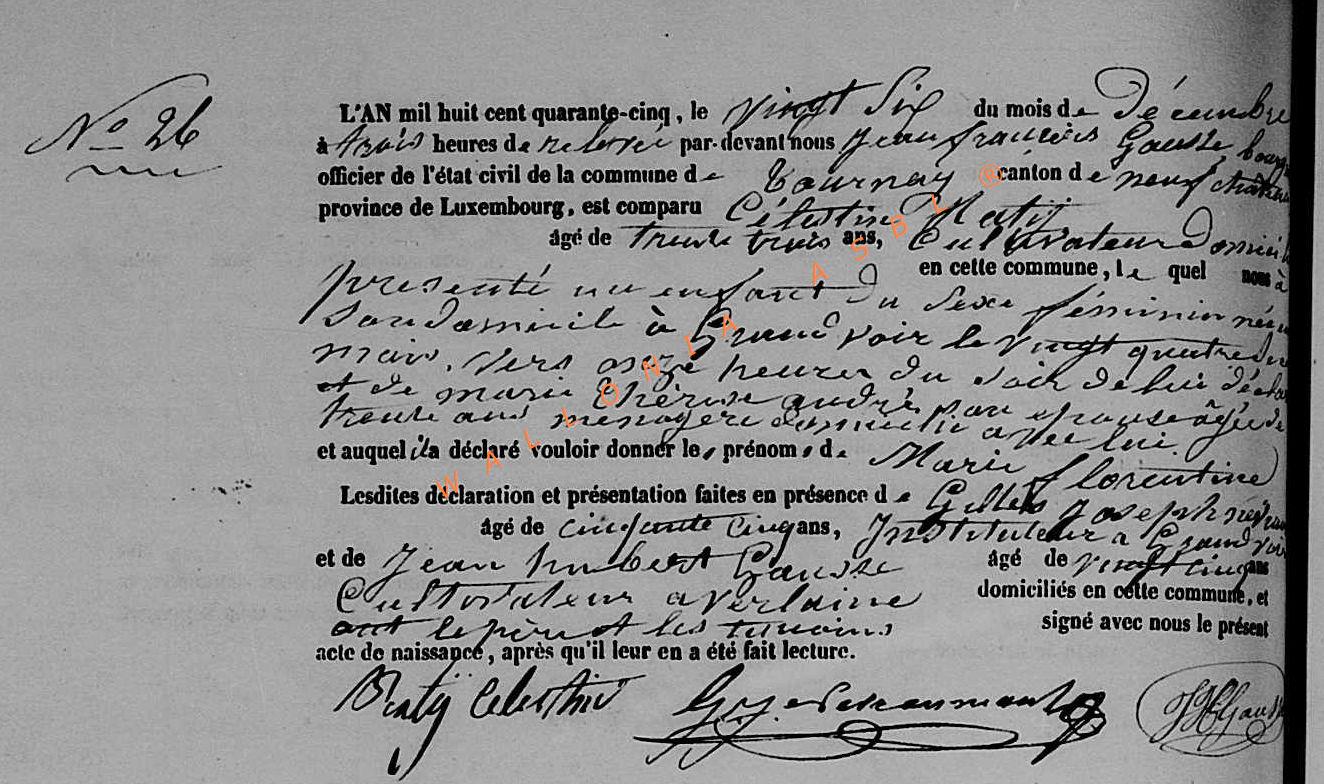 No 26
L'AN mil huit cent quarante-cinq, le vingt Six du mois de Décembre
à trois heures de relevée par-devant nous Jean françois Gausse
officier de l'état civil de la commune de Tournay canton de neufchateau
province de Luxembourg, est comparu Célestin
âgé de trente trois ans, Cultivateur
en cette commune, le quel nous à
presenté un enfant du sexe féminin
son domicile à Grand voir le vingt quatre du
mois, vers onze heures du soir de lui déclar
et de marie thérèse andré son epouse âgée de
trente ans menagere domicilié avec lui.
et auquel il a déclaré vouloir donner les prénoms de Marie florentine
Lesdites déclaration et présentation faites en présence de Joseph
âgé de cinquante cinq ans, Instituteur a Grand voir
et de Jean hubert Gausse âgé de vingt cinq ans
Cultivateur a Verlaine domiciliés en cette commune, et
ont le père et les temoins signé avec nous le présent
acte de naissance, après qu'il leur en a été fait lecture.
Celestin
JHGausse
WALLONIA ASBL ®